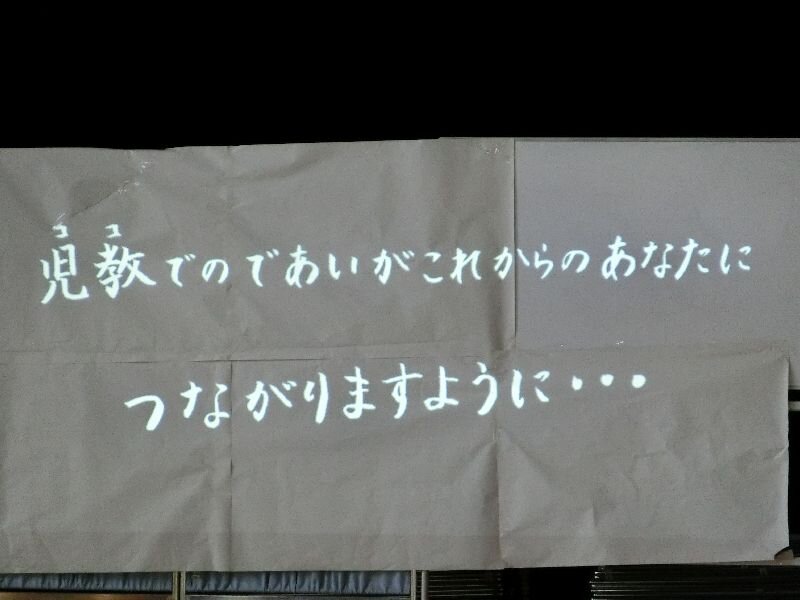 ココ
児教でのであいがこれからのあなたに
つながりますように・・・